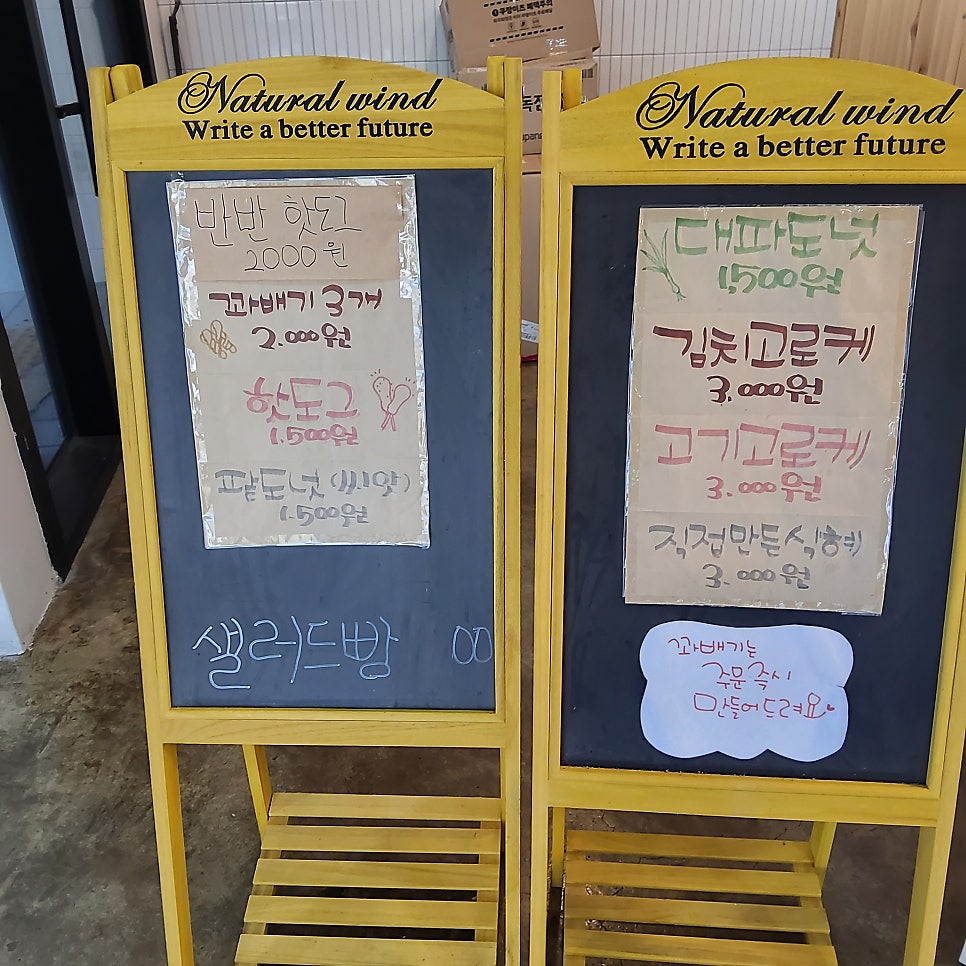 Natural wind
Write a better future
반반 핫도그
2000원
꽈배기 3개
2.000원
핫도그
1.500원
팥도넛(씨앗)
1.500원
샐러드빵 00
Natural wind
Write a better future
대파도넛
1,500원
김치고로케
3.000원
고기고로케
3.000원
직접만든식혜
3.000원
꽈배기는
주문즉시
만들어드려요